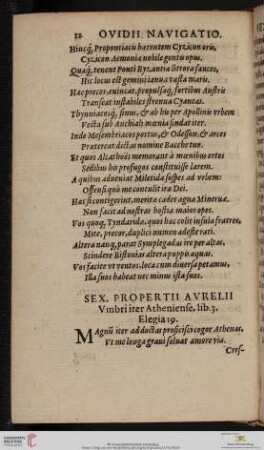 32 OVIDII NAVIGATIO.
Hincq́; Propontiacis hærentem Cyzicon oris,
Cyzicon Aemonia nobile gentis opus.
Quaq́; tenent Ponti Byzantia littora fauces,
Hic locus est gemini ianua vasta maris.
Hæc precor euincat, propulsaq́; fortibus Austris
Transeat instabiles strenua Cyaneas.
Thynniacosq́; sinus, & ab his per Apollinis vrbem
Vecta sub Anchiali mœnia findat iter.
Inde Mesembriacos portus, & Odesson, & arces
Prætereat dictas nomine Bacche tuo.
Et quos Alcathoës memorant à mœnibus ortos
Sedibus his profugos constituisse larem.
A quibus adueniat Miletida sospes ad vrbem:
Offensi quò me contulit ira Dei.
Hæc si contigerint, merita cadet agna Mineruæ.
Non facit ad nostras hostia maior opes.
Vos quoq́; Tyndaridæ, quos hæc colit insula fratres,
Mite, precor, duplici numen adeste rati.
Altera nanq́; parat Symplegadas ire per altas,
Scindere Bistonias altera puppis aquas.
Vos facite vt ventos, loca cum diuersa petamus,
Illa suos habeat nec minus ista suos.
SEX. PROPERTII AVRELII
Vmbri iter Atheniense, lib. 3.
Elegia 19.
Magnũ iter ad doctas proficisci cogor Athenas,
Vt me longa graui soluat amore via.
Cres-